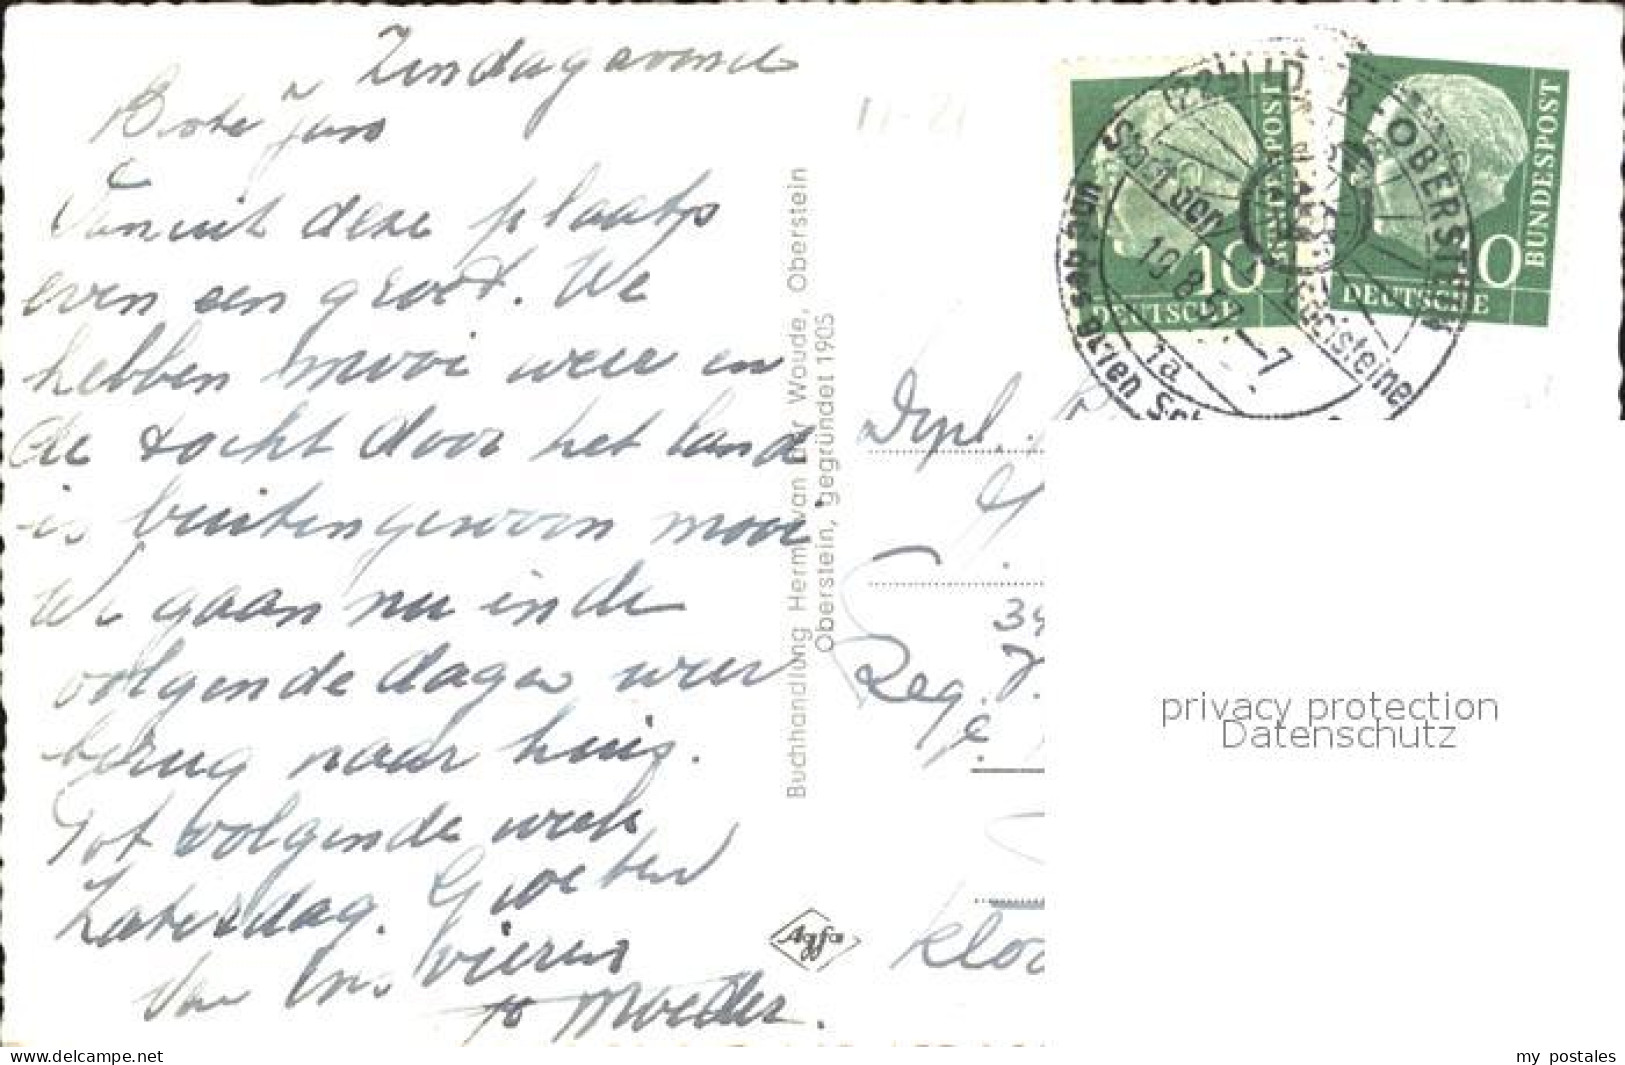 Zondagavond
Beste Jan
Vanuit deze plaats
even een groet. We
hebben mooi weer en
de tocht door het land
is buitengewoon mooi.
We gaan nu in de
volgende dagen weer
terug naar huis.
Tot volgende week
Zaterdag. Groeten
van ons vieren
Moeder.
Buchhandlung Herm. van der Woude, Oberstein
Oberstein, gegründet 1905
Agfa
(22b) IDAR-OBERSTEIN
19.8.57.--7
1a
BUNDESPOST
10
DEUTSCHE
BUNDESPOST
0
DEUTSCHE
Reg.
privacy protection
Datenschutz
delcampe.net
my_postales